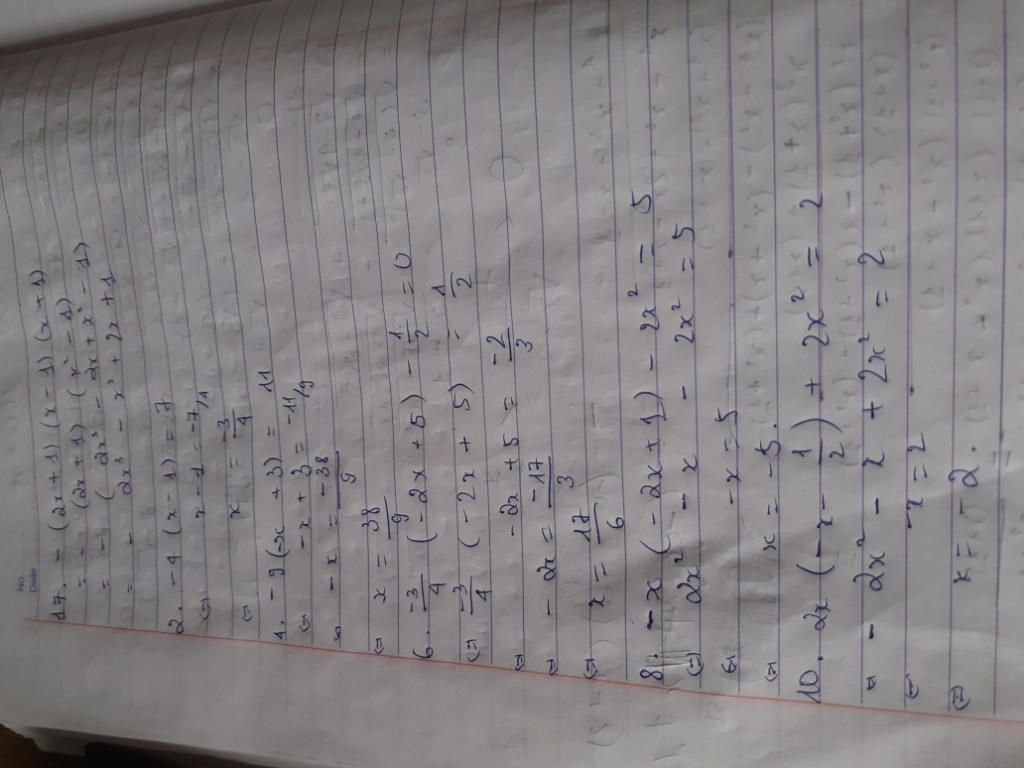 No.
Date
17. - (2x + 1) (x - 1) (x + 1)
= - (2x + 1) (x² - 1)
= - ( 2x³ - 2x + x² - 1)
= - 2x³ - x² + 2x + 1
2. -4 (x - 1) = -7
⇔ x - 1 = -7/4
⇔ x = -3/4
4. - 9 (-x + 3) = 11
⇔ -x + 3 = -11/9
⇔ - x = -38/9
⇔ x = 38/9
6. -3/4 (-2x + 5) - 1/2 = 0
⇔ -3/4 (-2x + 5) = 1/2
⇔ -2x + 5 = -2/3
⇔ - 2x = -17/3
⇔ x = 17/6
8. -x (-2x + 1) - 2x² = 5
⇔ 2x² - x - 2x² = 5
⇔ -x = 5
⇔ x = -5.
10. 2x (-x - 1/2) + 2x² = 2
⇔ - 2x² - x + 2x² = 2
⇔ -x = 2
⇔ x = -2.